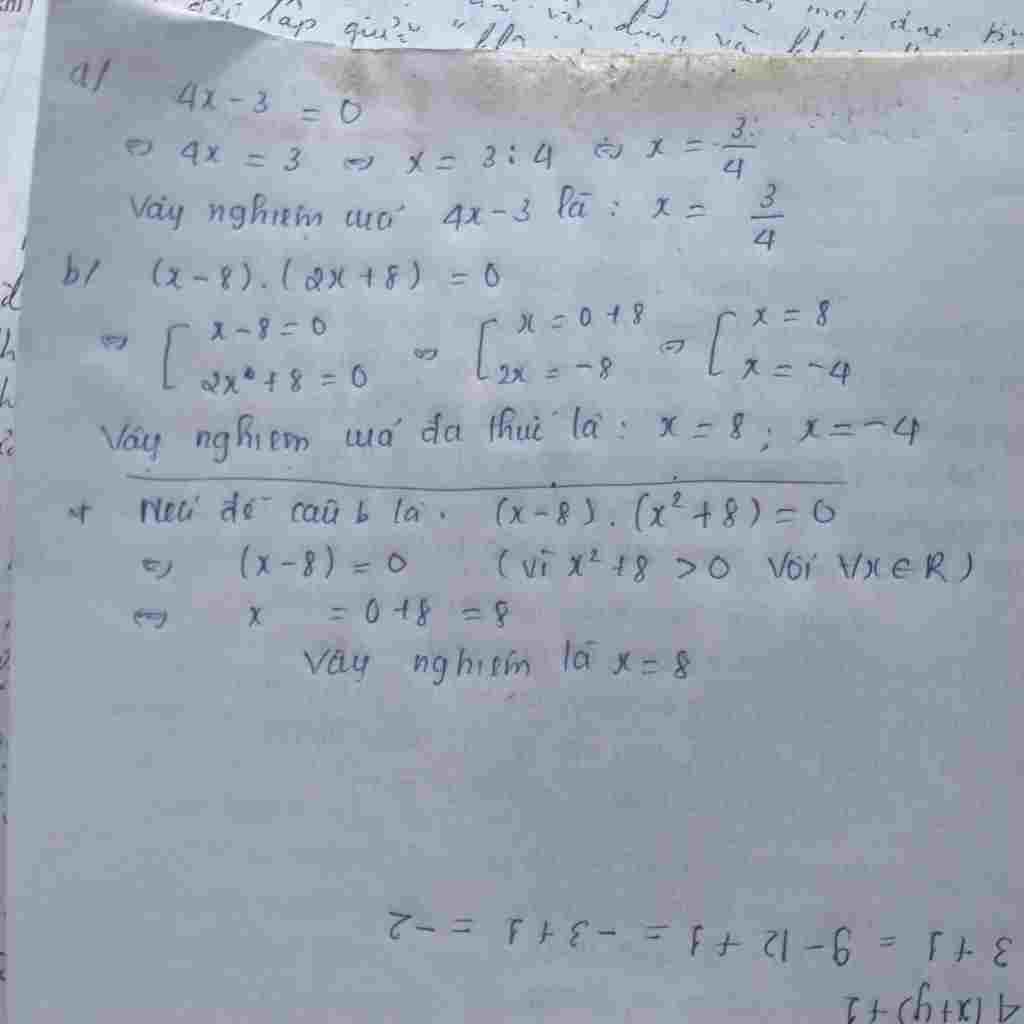 lập giữa
một
a/ 4x - 3 = 0
⇔ 4x = 3 ⇔ x = 3 : 4 ⇔ x = 3/4
Vậy nghiệm của 4x - 3 là : x = 3/4
b/ (x - 8) . (2x + 8) = 0
⇔ [ x - 8 = 0 ⇔ [ x = 0 + 8 ⇔ [ x = 8
2x + 8 = 0 2x = -8 x = -4
Vậy nghiệm của đa thức là : x = 8 ; x = -4
+ Nếu đề câu b là . (x - 8) . (x² + 8) = 0
⇔ (x - 8) = 0 (vì x² + 8 > 0 với ∀x ∈ R)
⇔ x = 0 + 8 = 8
Vậy nghiệm là x = 8
4(x+y)+1
3 + 1 = 9 - 12 + 1 = -3 + 1 = -2